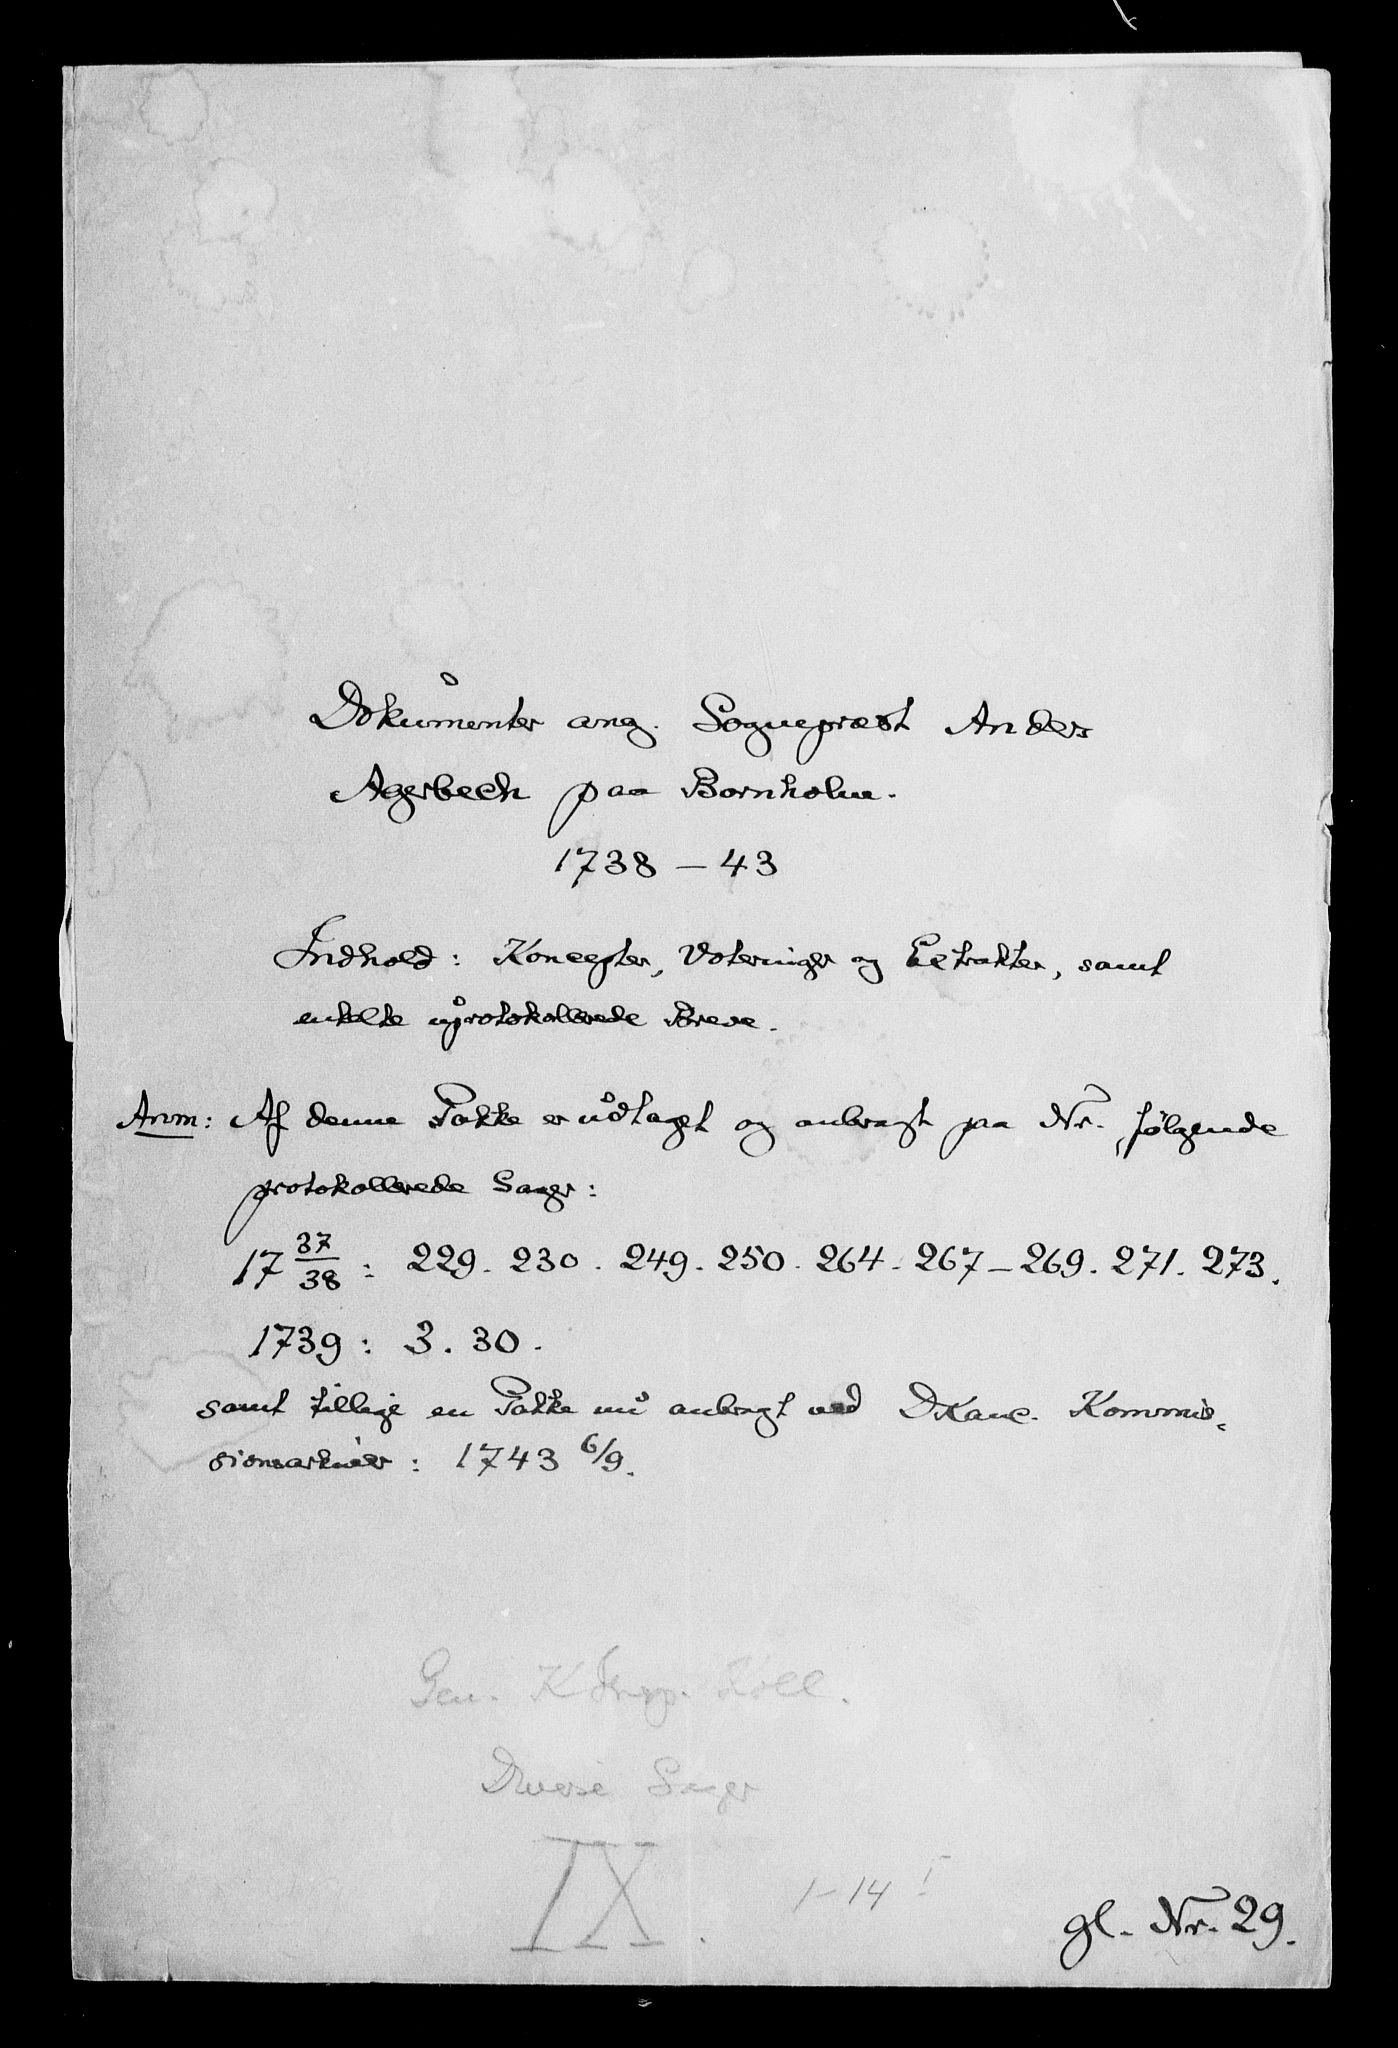 Dokumenter ang. Sognepræst Anders
Agerbech paa Bornholm.
1738 – 43
Indhold: Koncepter, Voteringer og Extrakter, samt
enkelte uprotokollerede Breve.
Anm: Af denne Pakke er udtaget og anbragt paa Nr., følgende
protokollerede Sager:
17 37/38 : 229. 230. 249. 250. 264. 267–269. 271. 273.
1739: 3. 30.
samt tillige en Pakke nu anbragt ved D Kanc. Kommis-
sionsarkiver: 1743 6/9.
Gen. K Insp. Koll.
Diverse Sager
IX.
1–14
gl. Nr. 29.